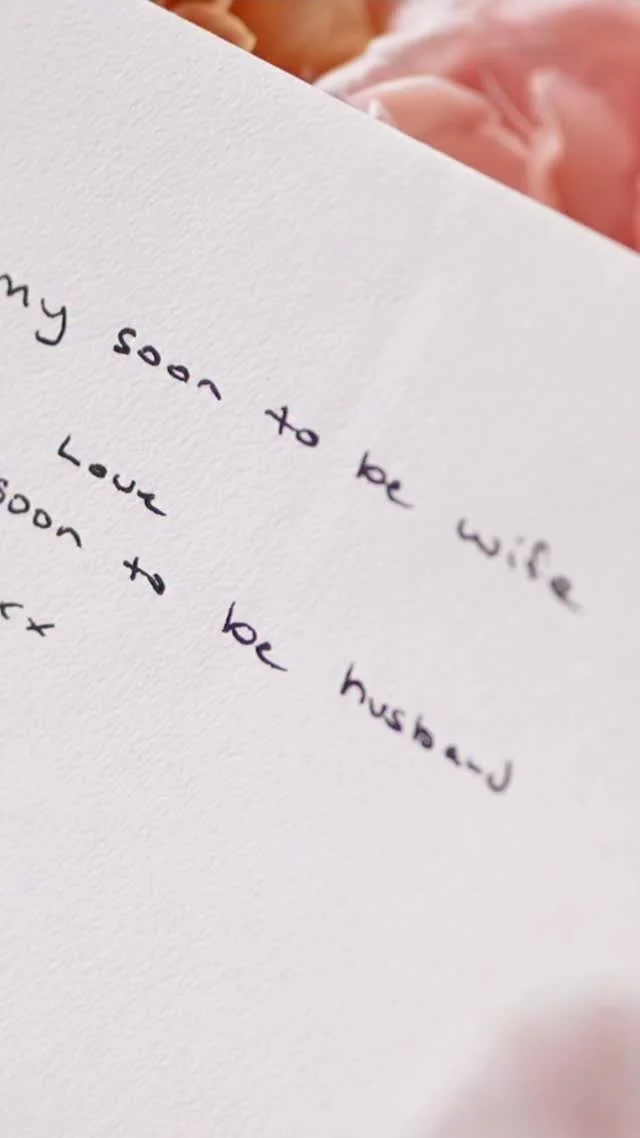 my soon to be wife
Love
soon to be husband
xx